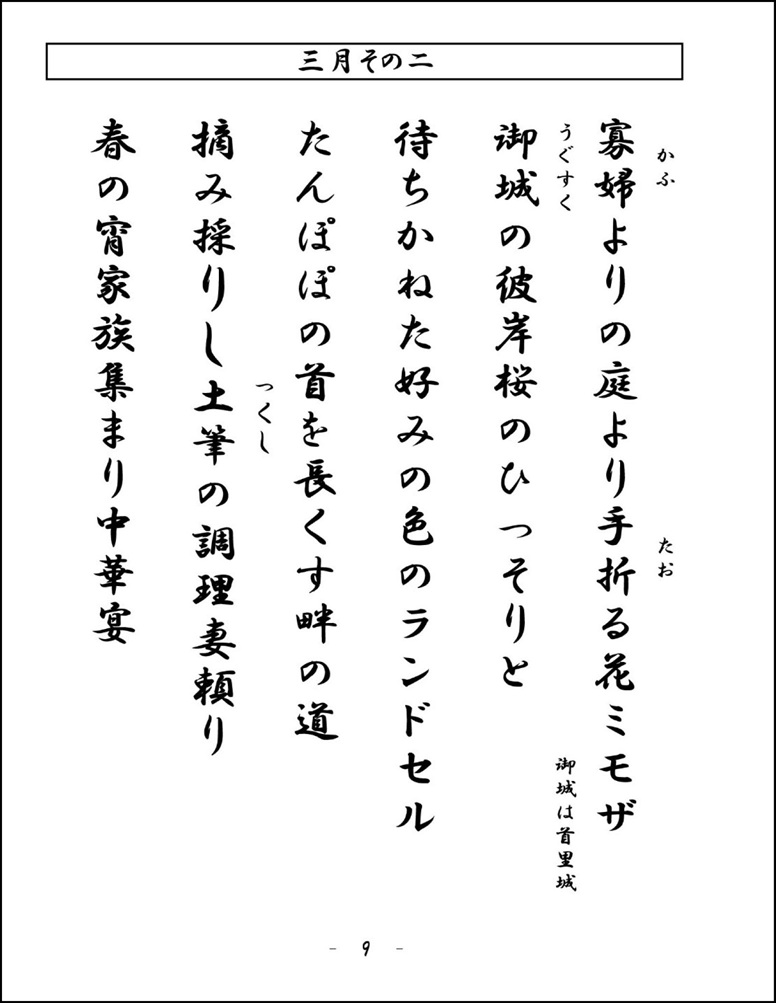 三月その二
かふ
たお
寡婦よりの庭より手折る花ミモザ
うぐすく
御城の彼岸桜のひっそりと
御城は首里城
待ちかねた好みの色のランドセル
たんぽぽの首を長くす畔の道
つくし
摘み採りし土筆の調理妻頼り
春の宵家族集まり中華宴
- 9 -